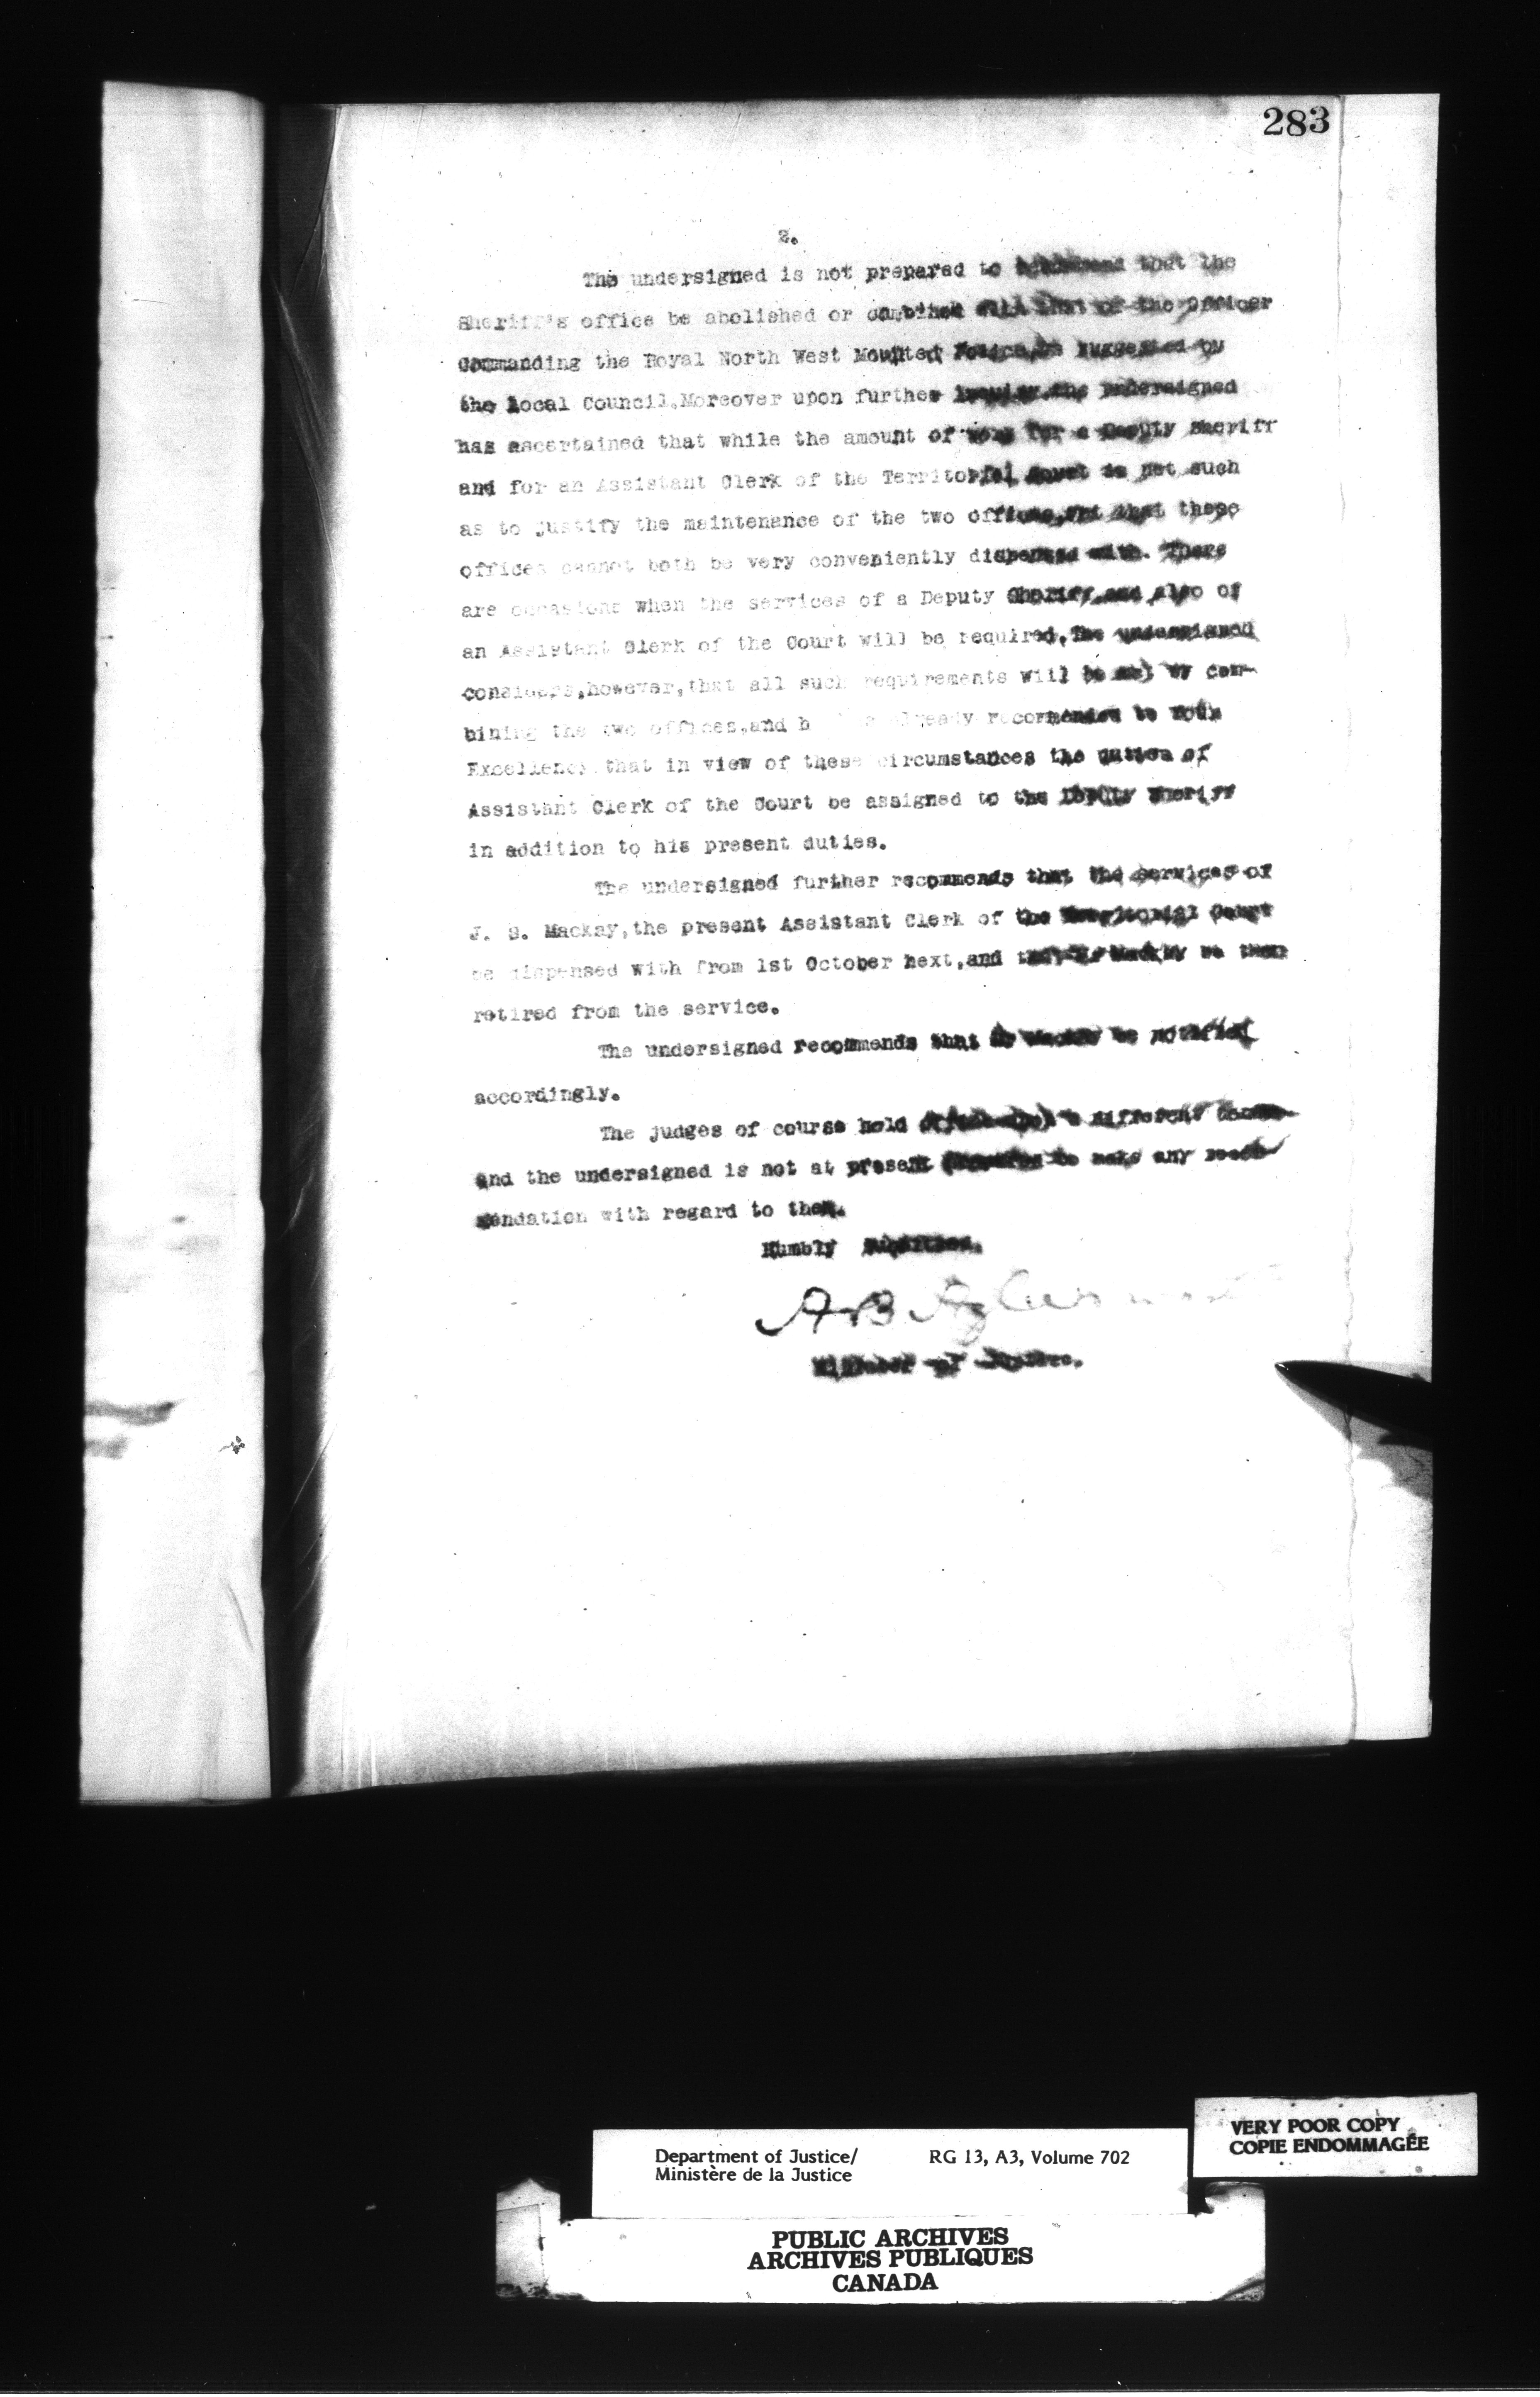 283
2.
The undersigned is not prepared to that the
Sheriff's office be abolished or combined with that of the Officer
Commanding the Royal North West Mounted Police, as suggested by
the Local Council. Moreover upon further inquiry, the undersigned
has ascertained that while the amount of work for a Deputy Sheriff
and for an Assistant Clerk of the Territorial Court is not such
as to justify the maintenance of the two offices, yet that these
offices cannot both be very conveniently dispensed with. There
are occasions when the services of a Deputy Sheriff, and also of
an Assistant Clerk of the Court will be required. The undersigned
considers, however, that all such requirements will be met by com-
bining the two offices, and h already recommended to Your
Excellency that in view of these circumstances the duties of
Assistant Clerk of the Court be assigned to the Deputy Sheriff
in addition to his present duties.
The undersigned further recommends that the services of
J. S. Mackay, the present Assistant Clerk of the Territorial Court
be dispensed with from 1st October next, and that Mr Mackay be then
retired from the service.
The undersigned recommends that Mr Mackay be notified
accordingly.
The judges of course hold a different
and the undersigned is not at present prepared to make any recom-
mendation with regard to them.
Humbly submitted,
A B Aylesworth
Minister of Justice.
Department of Justice/ RG 13, A3, Volume 702
Ministère de la Justice
VERY POOR COPY
COPIE ENDOMMAGÉE
PUBLIC ARCHIVES
ARCHIVES PUBLIQUES
CANADA